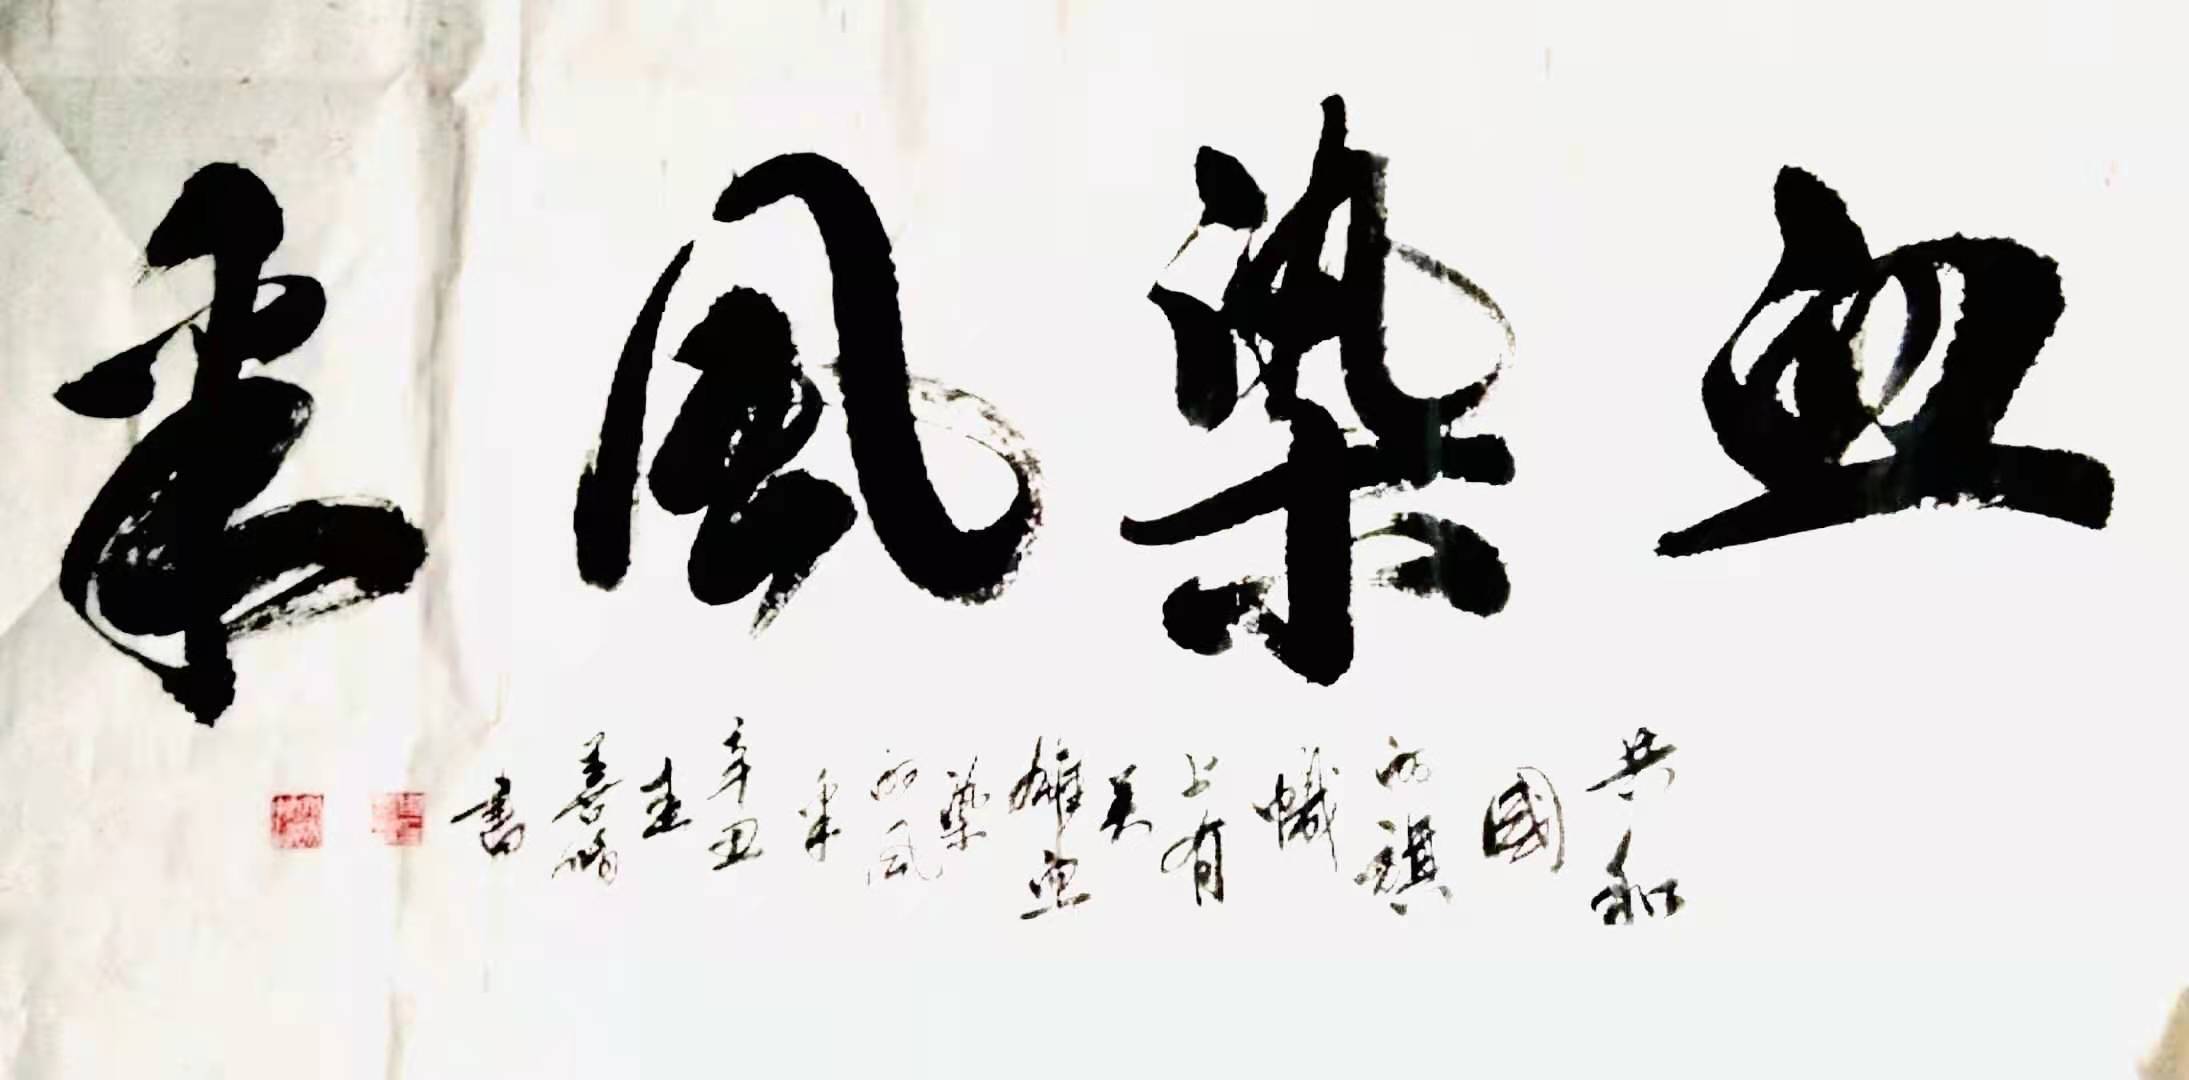 血染風采
共和
國
的旗
幟
上有
英
雄血
染
的風
采
辛丑
善
書